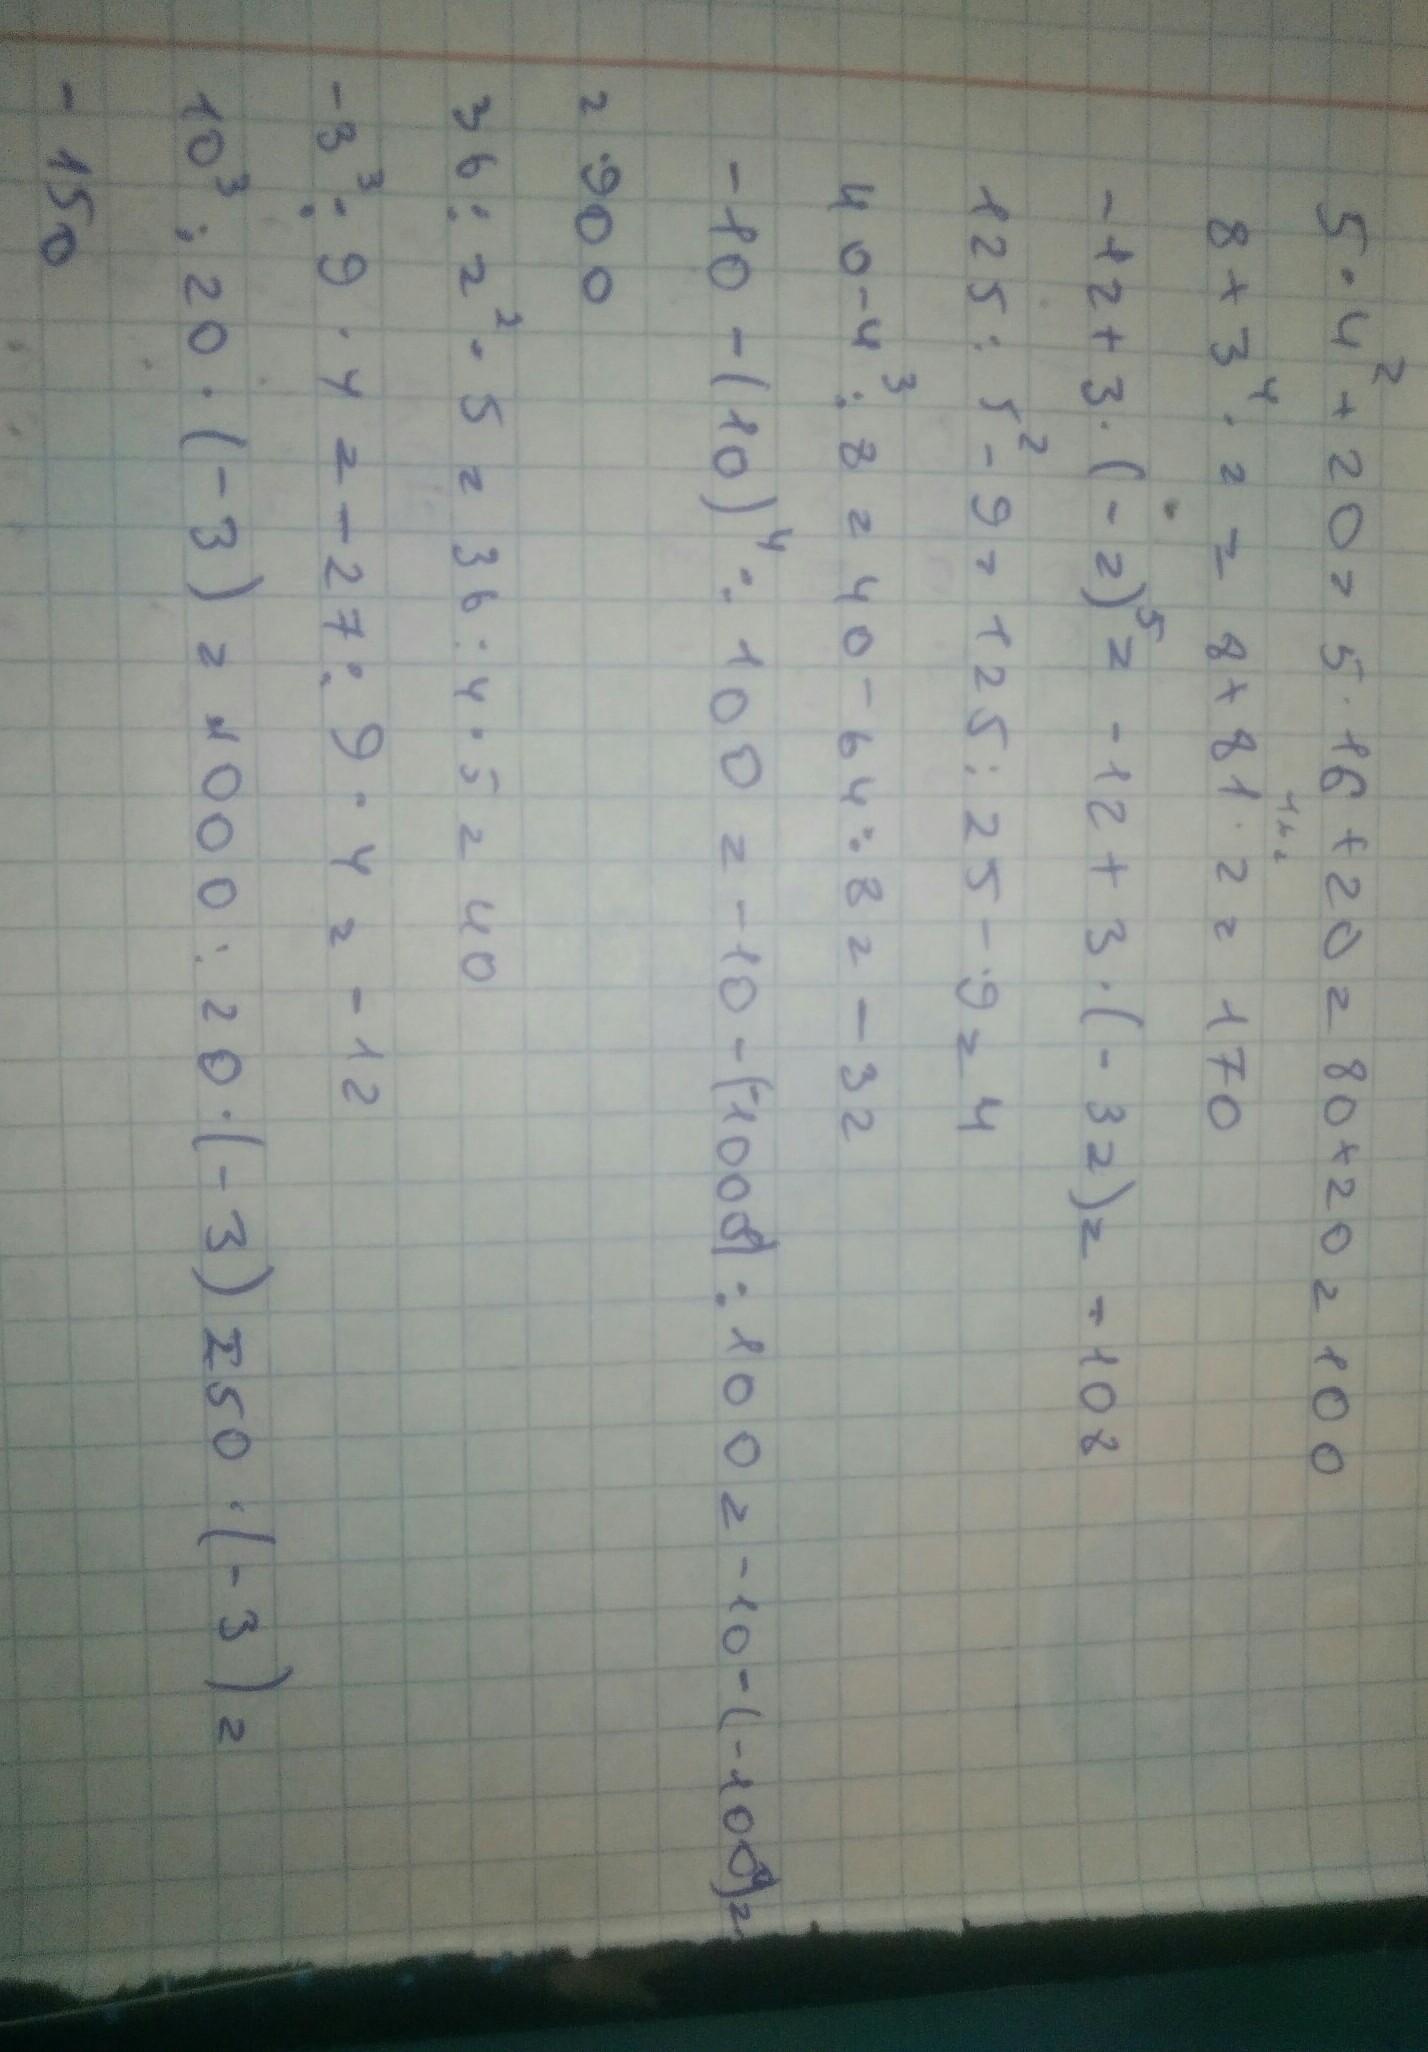 5·4²+20=5·16+20=80+20=100
8+3⁴·2=8+81·2=170
-12+3·(-2)⁵=-12+3·(-32)=-108
125:5²-9=125:25-9=4
40-4³:8=40-64:8=-32
-10-(10)⁴:100=-10-(1000):100=-10-(-100)=
=900
36:2²·5=36:4·5=40
-3³:9·4=-27:9·4=-12
10³:20·(-3)=1000:20·(-3)=50·(-3)=
-150